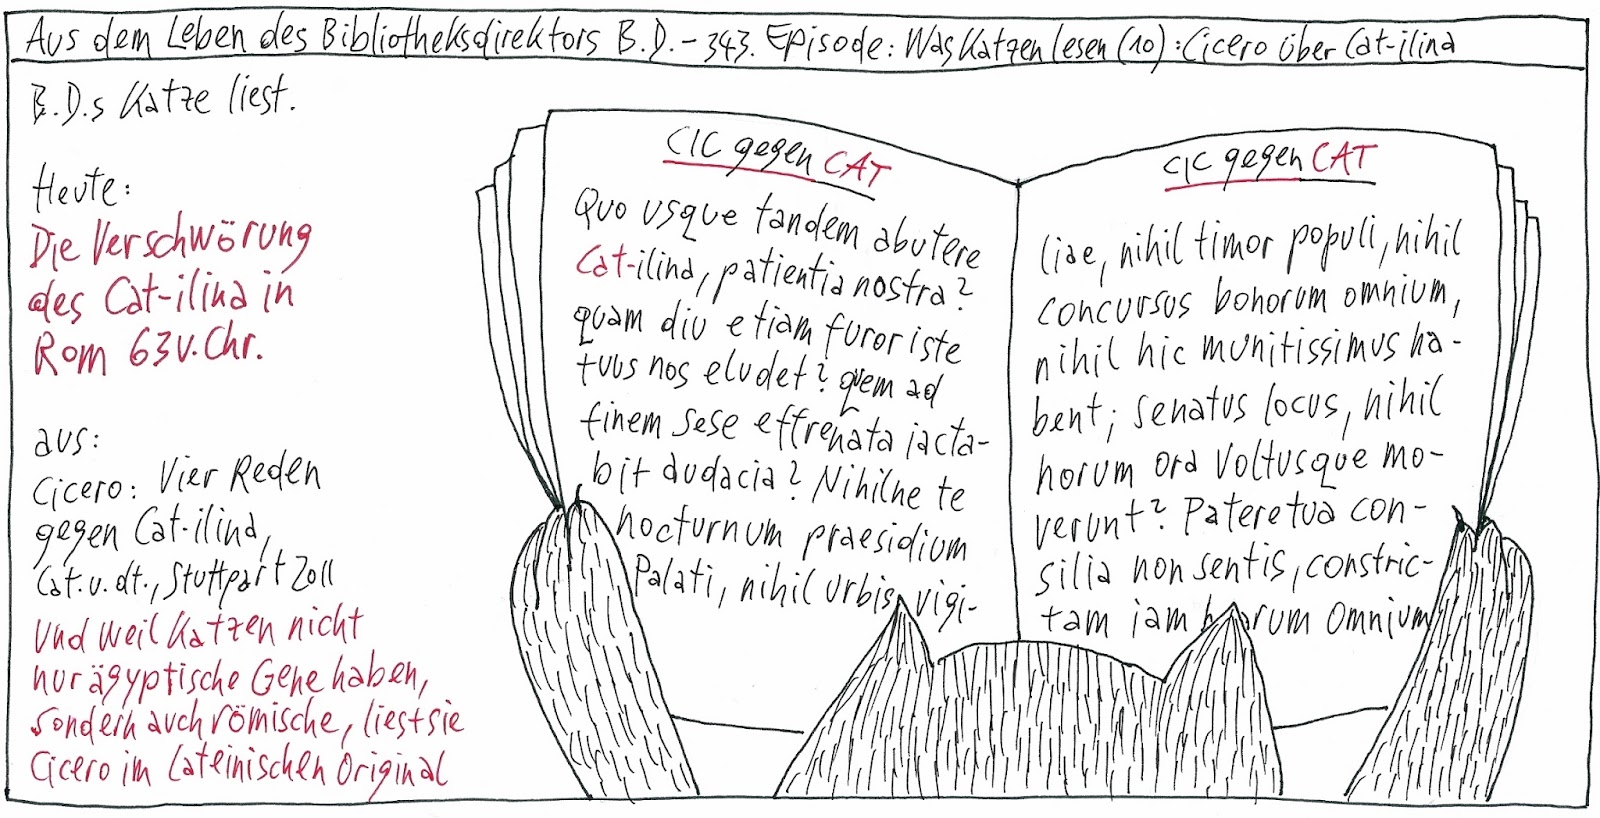 Aus dem Leben des Bibliotheksdirektors B.D. - 343. Episode: Was Katzen lesen (10): Cicero über Cat-ilina
B.D.s Katze liest.
Heute:
Die Verschwörung
des Cat-ilina in
Rom 63 v. Chr.
aus:
Cicero: Vier Reden
gegen Cat-ilina,
Cat. u. dt., Stuttgart 2011
Und weil Katzen nicht
nur ägyptische Gene haben,
sondern auch römische, liest sie
Cicero im Lateinischen Original
CIC gegen CAT
Quo usque tandem abutere
Cat-ilina, patientia nostra?
quam diu etiam furor iste
tuus nos eludet? quem ad
finem sese effrenata iacta-
bit audacia? Nihilne te
nocturnum praesidium
Palati, nihil urbis vigi-
CIC gegen CAT
liae, nihil timor populi, nihil
concursus bonorum omnium,
nihil hic munitissimus ha-
bent; senatus locus, nihil
horum ora voltusque mo-
verunt? Patere tua con-
silia non sentis, constric-
tam iam horum omnium